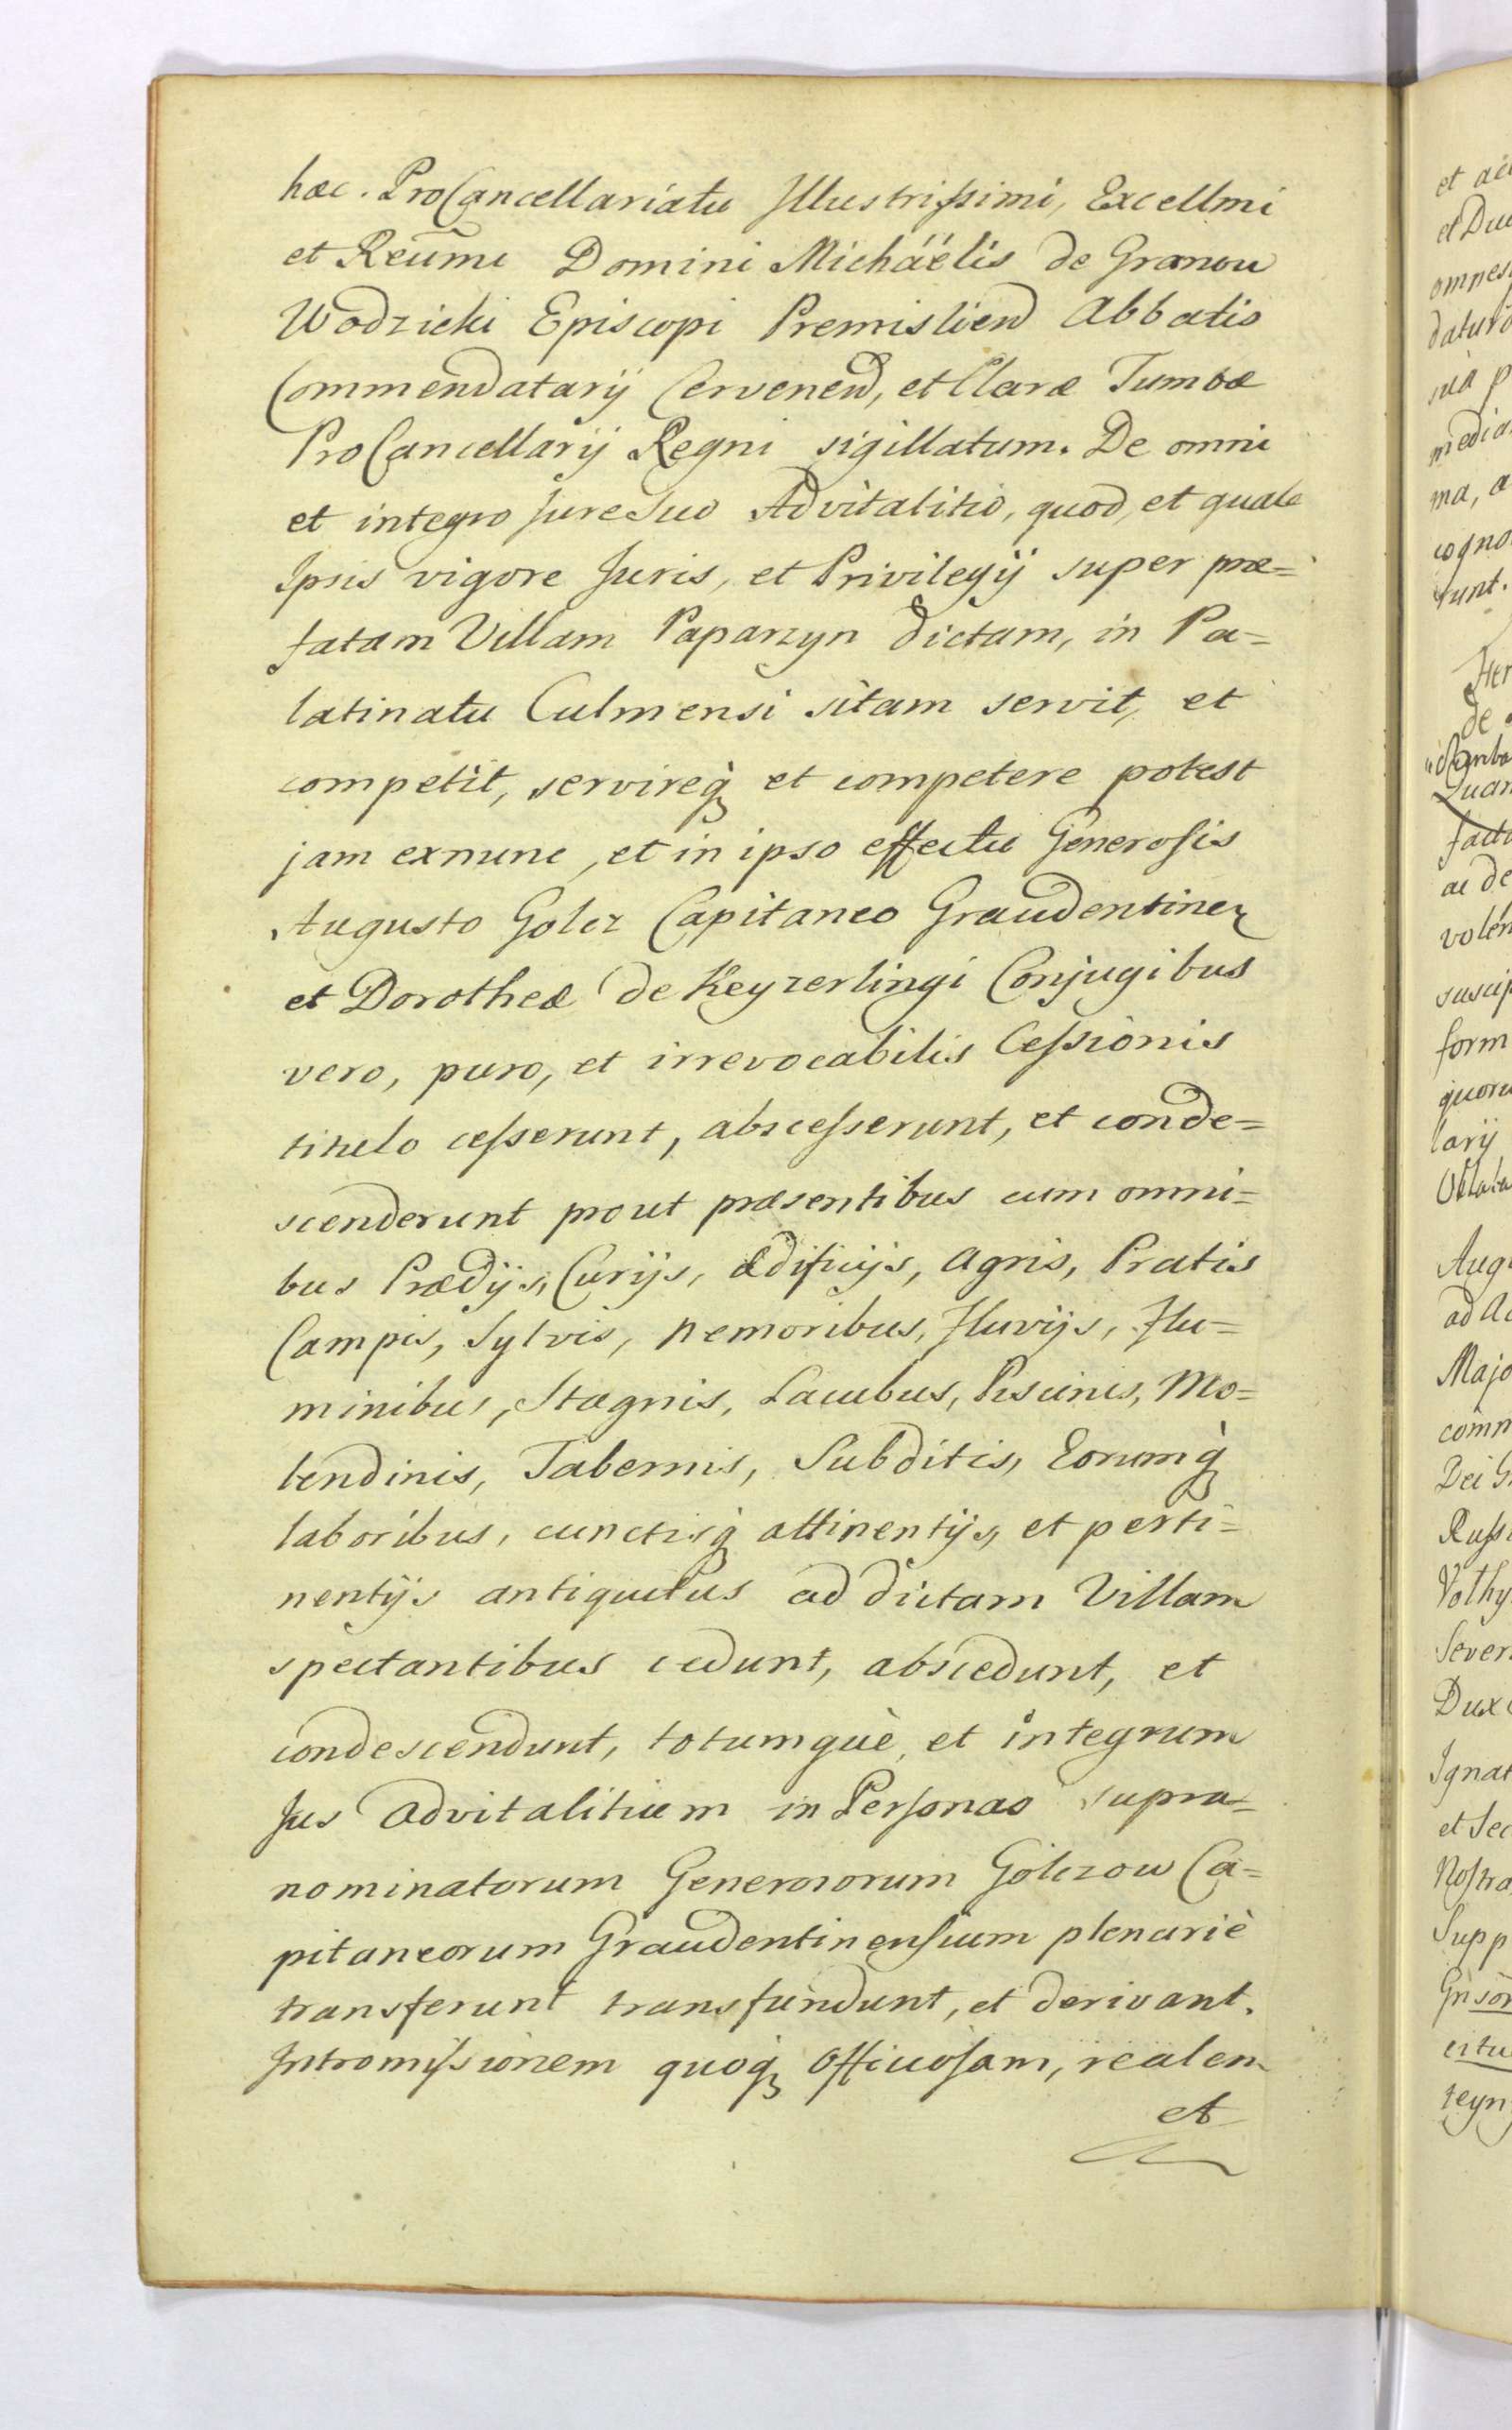 hæc. ProCancellariatu Illustrissimi, Excellmi
et Reūmi Domini Michäelis de Granow
Wodzicki Episcopi Premislien Abbatis
Commendatarij Cervenen, et Claræ Tumbæ
ProCancellarij Regni sigillatum. De omni
et integro Jure Suo Advitalitio, quod, et quale
Ipsis vigore Juris, et Privilegij super præ=
fatam Villam Paparzyn dictam, in Pa=
latinatu Culmensi sitam servit, et
competit, servireq̀ et competere potest
jam exnunc, et in ipso effectu Generosis
Augusto Golcz Capitaneo Graudentinen
et Dorotheæ de Keyzerlingi Conjugibus
vero, puro, et irrevocabilis Cessionis
titulo cesserunt, abscesserunt, et conde=
scenderunt prout præsentibus cum omni=
bus Prædijs, Curijs, ædificijs, agris, Pratis
Campis, Sylvis, Nemoribus, Fluvijs, Flu=
minibus, Stagnis, Lacubus, Piscinis, Mo=
lendinis, Tabernis, Subditis, Eorumq̀
laboribus, cunctisq̀ attinentijs, et perti=
nentijs antiquitus ad dictam Villam
spectantibus cedunt, abscedunt, et
condescendunt, totumquè et integrum
Jus advitalitium in Personas supra=
nominatorum Generosorum Golczow Ca=
pitaneorum Graudentinensium plenariè
transferunt transfundunt, et derivant.
Intromissionem quoq̀ officiosam, realem
et
et
omnes
ma, a
cogno
sunt.
de
form
larij
Aug
ad
Majo
Dei
Dux
Ignat
et Sec
Nostra
Supp